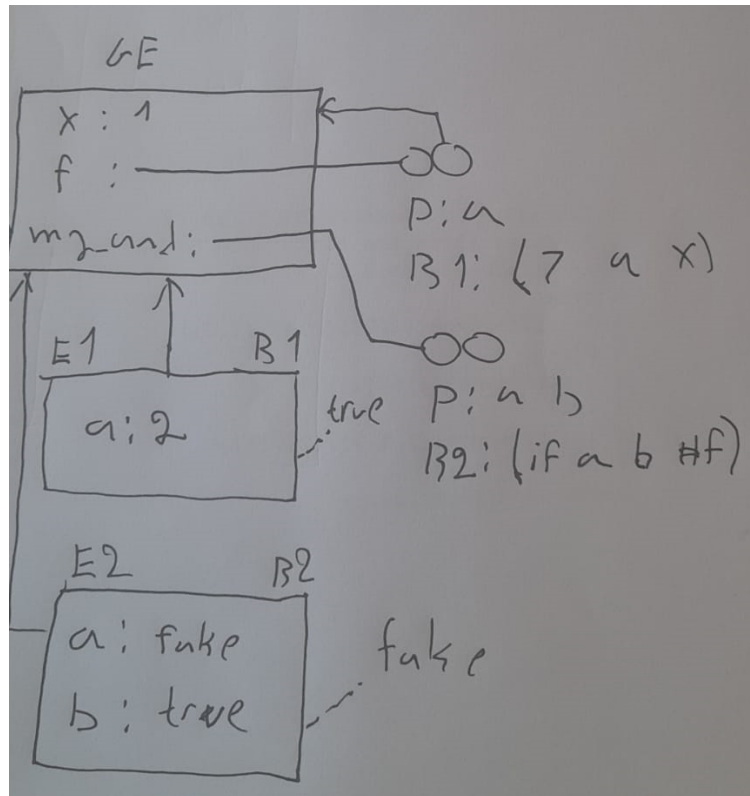 GE
x : 1
f :
my_and:
P: a
B1: (> a x)
E1 B1
a: 2
true
P: a b
B2: (if a b #f)
E2 B2
a: false
b: true
false